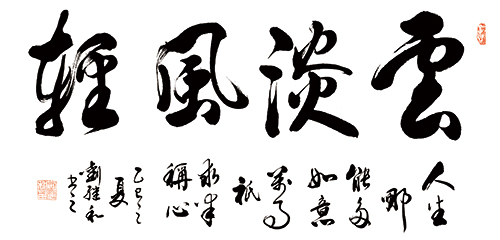 雲淡風輕
人生
哪
能多
如意
萬事
祇
求半
稱心
乙巳之
夏
書之